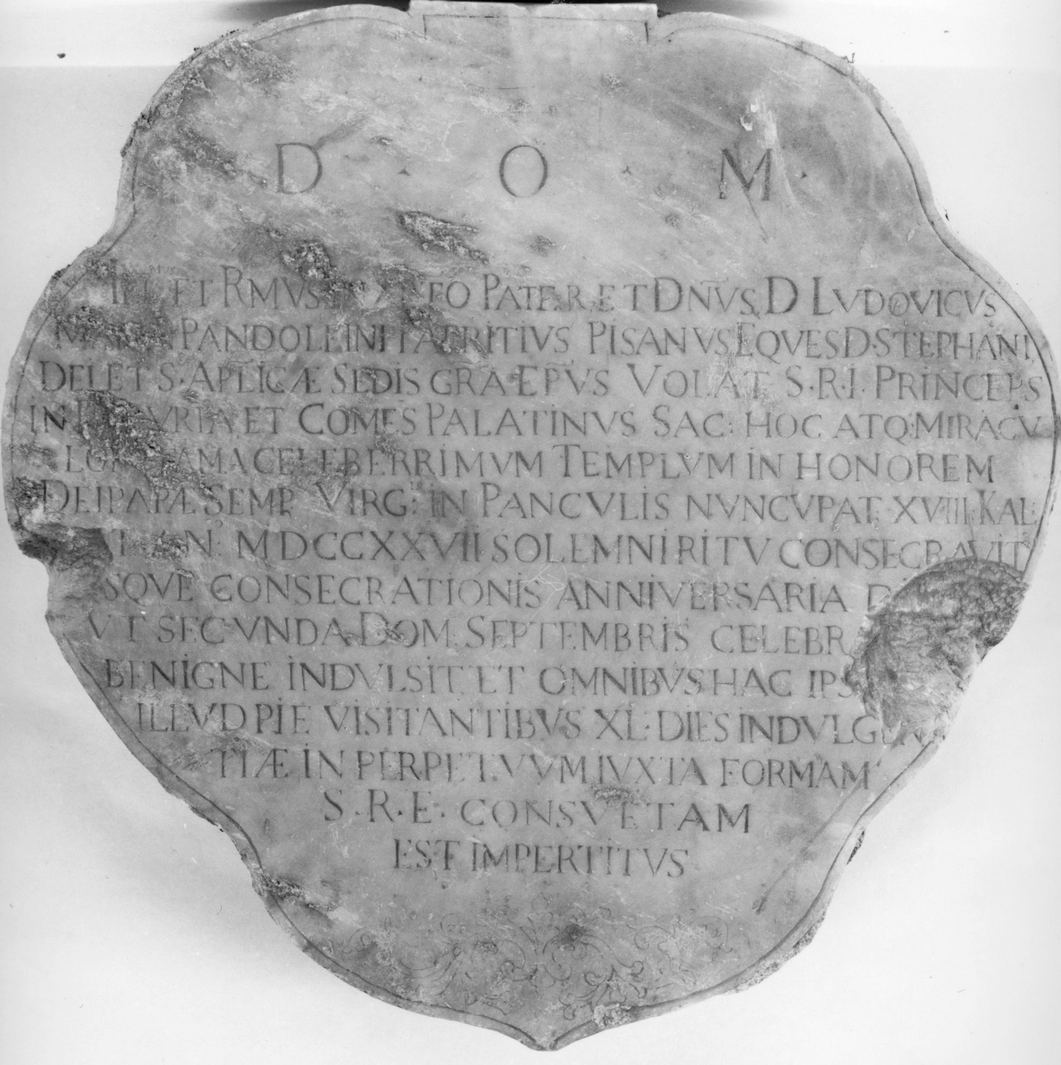 D · O · M ·
ET RMVS PATER ET DNVS D LVDOVICVS
PANDOLFINI PATRITIVS PISANVS EQVES D STEPHANI
DEI ET S· APLICÆ SEDIS GRA EPVS VOLAT S·R·I· PRINCEPS
IN ET COMES PALATINVS SAC: HOC ATQ: MIRACV
CELEBERRIMVM TEMPLVM IN HONOREM
DEIPARÆ SEMP. VIRG: IN PANCVLIS NVNCVPAT· XVIII KAL:
MDCCXXVII SOLEMNI RITV CONSECRAVIT
CONSECRATIONIS ANNIVERSARIA
VT SECVNDA DOM: SEPTEMBRIS
BENIGNE INDVLSIT ET OMNIBVS HAC
ILLVD PIE VISITANTIBVS XL· DIES INDVLGEN
TIÆ IN PERPETVVM IVXTA FORMAM
S·R·E· CONSVETAM
EST IMPERTITVS